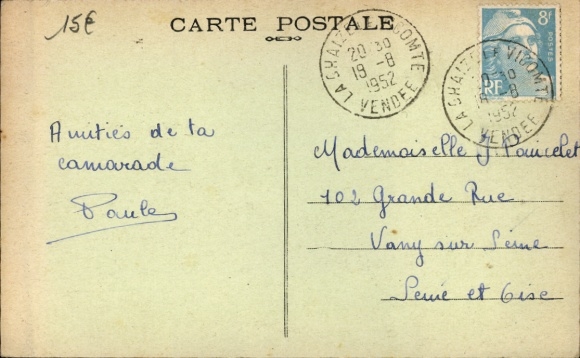 15€
CARTE POSTALE
LA CHAIZE LE VICOMTE
20-30
19-8
1952
VENDEE
8F
POSTES
RF
LA CHAIZE LE VICOMTE
20-30
19-8
1952
VENDEE
Amitiés de ta
camarade
Paule
Mademoiselle J
102 Grande Rue
Vany sur Seine
Seine et Oise